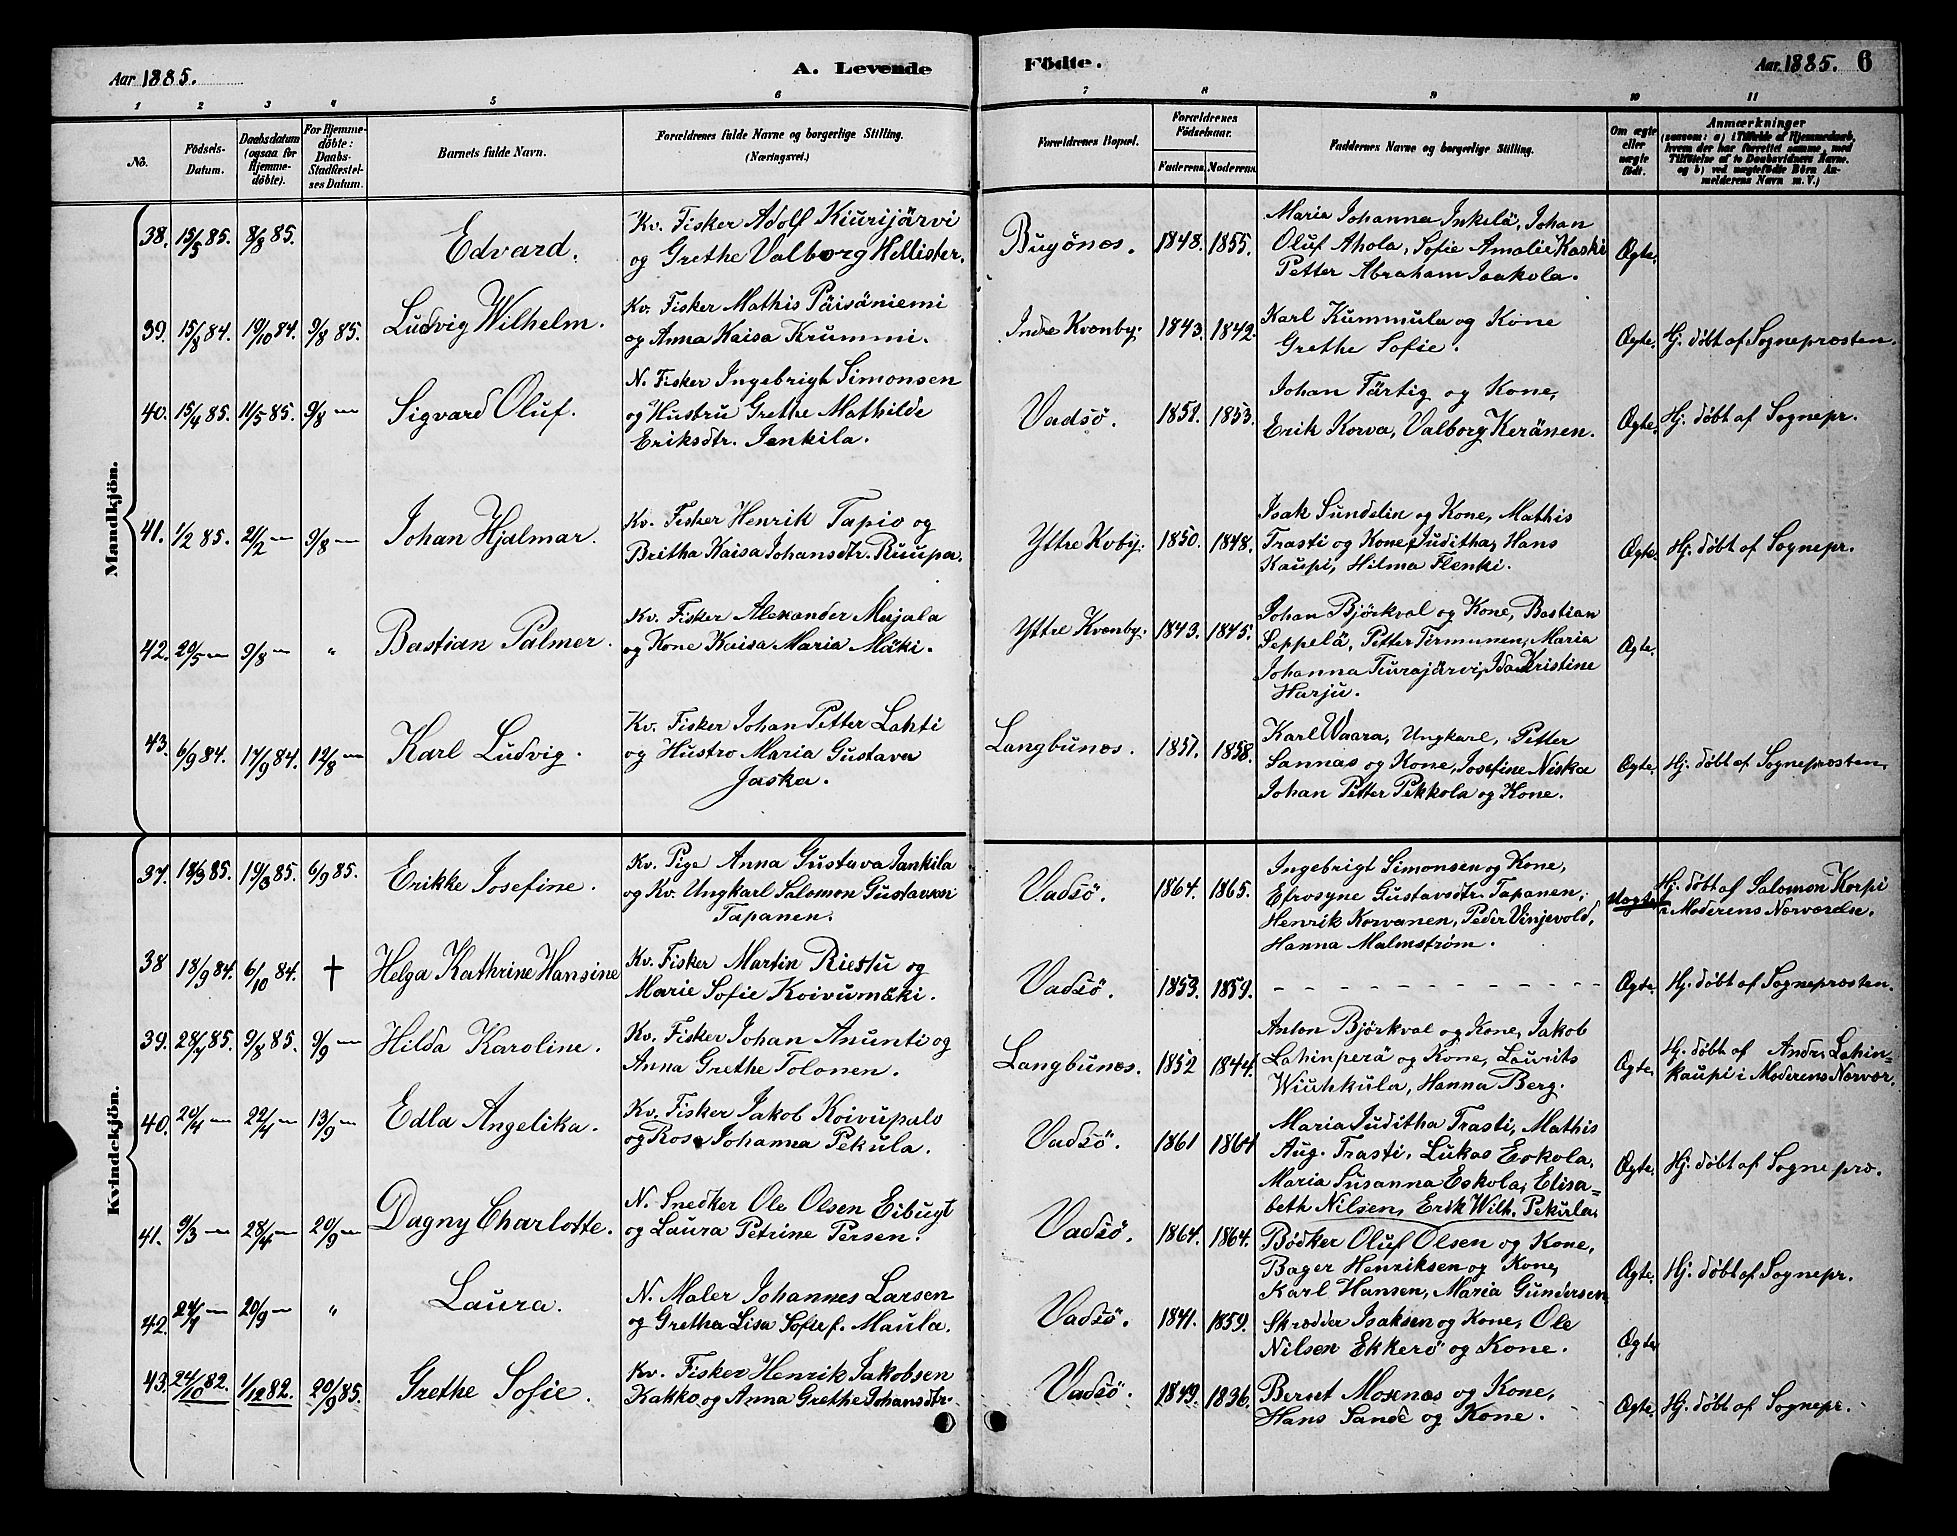 Aar 1885. A. Levende Födte. Aar 1885. 6
1 2 3 4 5 6 7 8 9 10 11
No. Födsels-Datum. Daabsdatum (ogsaa for Hjemme-döbte). For Hjemme-döbte: Daabs-Stadfæstel-ses Datum. Barnets fulde Navn. Forældrenes fulde Navne og borgerlige Stilling. (Næringsvei.) Forældrenes Bopæl. Forældrenes Födselsaar. Faderens. Moderens. Faddernes Navne og borgerlige Stilling. Om ægte eller uægte födt. Anmærkninger (saasom: a) i Tilfælde af Hjemmedaab, hvem der har forrettet samme, med Tilföielse af to Daabsvidners Navne. og b) ved uægtefödte Börn An-melderens Navn m. V.)
Mandkjön.
38. 15/5 85. 8/8 85. Edvard. Kv. Fisker Adolf Kiurijärvi
og Grethe Valborg Hellister.
Bugönes. 1848. 1855. Maria Johanna Inkilä, Johan
Oluf Ahola, Sofie Amalie Kaski
Petter Abraham Isakola. Ægte.
39. 15/8 84. 19/10 84. 9/8 85. Ludvig Wilhelm. Kv. Fisker Mathis Päisäniemi
og Anna Kaisa Krummi.
Indre Kvænby. 1843. 1842. Karl Kummula og Kone
Grethe Sofie. Ægte. Hj. döbt af Sognepræsten.
40. 15/4 85. 11/5 85. 9/8 — Sigvard Oluf. N. Fisker Ingebrigt Simonsen
og Hustru Grethe Mathilde
Eriksdtr. Jankila.
Vadsö. 1852. 1853. Johan Tärtig og Kone,
Erik Korva, Valborg Keränen. Ægte. Hj. döbt af Sognepr.
41. 1/2 85. 21/2 — 9/8 — Johan Hjalmar. Kv. Fisker Henrik Tapio og
Britha Kaisa Johansdtr. Ruupa.
Yttre Kvby. 1850. 1848. Isak Sundelin og Kone, Mathis
Trasti og Kone Juditha, Hans
Kaupi, Hilma Flenki. Ægte. Hj. döbt af Sognepr.
42. 20/5 — 9/8 — " Bastian Palmer. Kv. Fisker Alexander Mujala
og Kone Kaisa Maria Mäki.
Yttre Kvænby. 1843. 1845. Johan Björkval og Kone, Bastian
Seppelä, Petter Termunen, Maria
Johanna Turajärvi, Ida Kristine
Harju. Ægte.
43. 6/9 84. 17/9 84. 12/8 — Karl Ludvig. Kv. Fisker Johan Petter Lahti
og Hustro Maria Gustava
Jaska.
Langbunes. 1851. 1858. Karl Waara, Ungkarl, Petter
Sannas og Kone, Josefine Niska
Johan Petter Pekkola og Kone. Ægte. Hj. döbt af Sognepræsten.
Kvindekjön.
37. 18/3 85. 19/3 85. 6/9 85. Erikke Josefine. Kv. Pige Anna Gustava Jankila
og Kv. Ungkarl Salomon Gustavsen
Tapanen.
Vadsö. 1864. 1865. Ingebrigt Simonsen og Kone,
Efrosyne Gustavsdtr. Tapanen,
Henrik Korvanen, Peder Vinjevold,
Hanna Malmström. Uægte. Hj. döbt af Salomon Korpi
i Moderens Nærværelse.
38 18/9 84. 6/10 84. † Helga Kathrine Hansine Kv. Fisker Martin Riestu og
Marie Sofie Koivumäki.
Vadsö. 1853. 1859. - - - - - - - - - - - - - Ægte. Hj. döbt af Sognepræsten.
39. 28/7 85. 9/8 85. 9/9 — Hilda Karoline. Kv. Fisker Johan Anunti og
Anna Grethe Tolonen.
Langbunes. 1852 1844. Anton Björkval og Kone, Jakob
Lahinperä og Kone, Laurits
Wiuhkula, Hanna Berg. Ægte. Hj. döbt af Andr. Lahin-
kaupi i Moderens Nærvær.
40. 20/4 — 22/4 — 13/9 — Edla Angelika. Kv. Fisker Jakob Koivupalo
og Rosa Johanna Pekula.
Vadsö. 1861 1864 Maria Juditha Trasti, Mathis
Aug. Trasti, Lukas Eskola,
Maria Susanna Eskola, Elisa-
beth Nilsen, Erik Wilh. Pekula. Ægte. Hj. döbt af Sognepræ.
41. 9/3 — 28/4 — 20/9 — Dagny Charlotte. N. Snedker Ole Olsen Eibugt
og Laura Petrine Persen.
Vadsö. 1864. 1864. Bödker Oluf Olsen og Kone,
Bager Henriksen og Kone,
Karl Hansen, Maria Gundersen Ægte. Hj. döbt af Sognepr.
42. 24/4 — 20/9 — " Laura. N. Maler Johannes Larsen
og Gretha Lisa Sofie f. Maula.
Vadsö. 1841. 1859. Skrædder Isaksen og Kone, Ole
Nilsen Ekkerö og Kone. Ægte
43. 24/10 82. 1/12 82. 20/9 85. Grethe Sofie. Kv. Fisker Henrik Jakobsen
Kakko og Anna Grethe Johansdtr.
Vadsö. 1849. 1836. Bernt Moxnæs og Kone,
Hans Sande og Kone. Ægte. Hj. döbt af Sognepr.